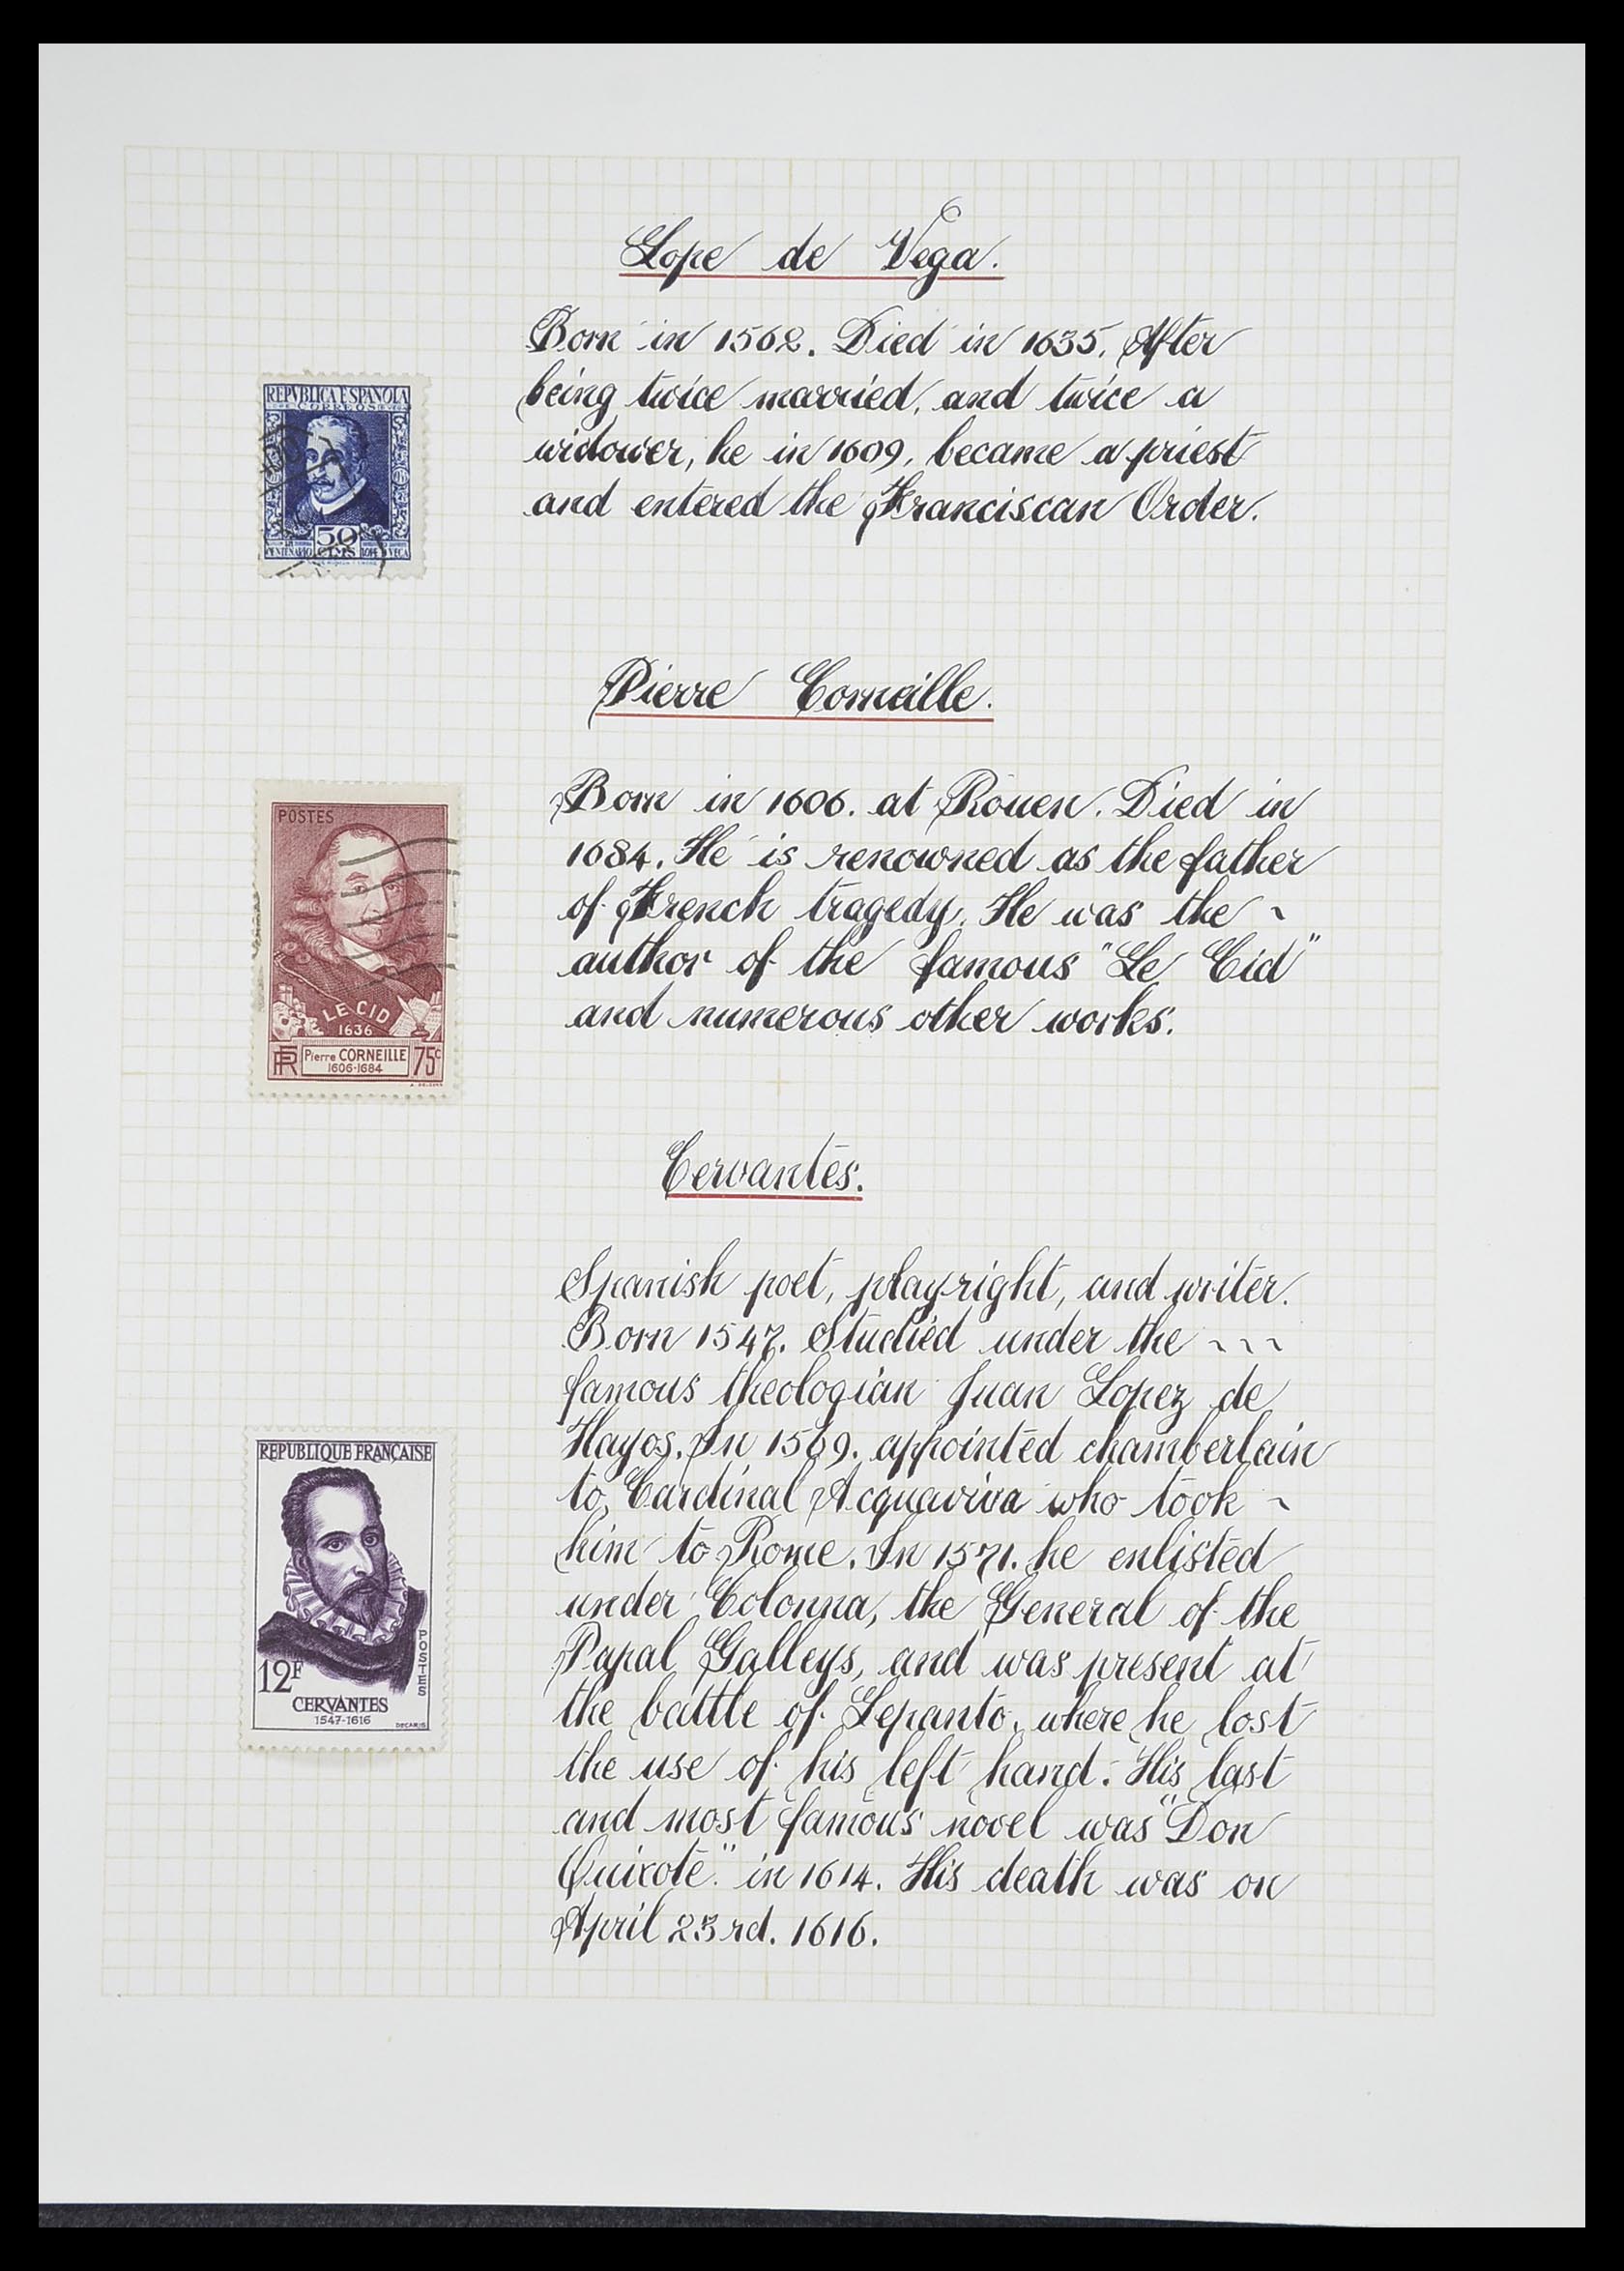 Lope de Vega.
Born in 1562. Died in 1635. After
being twice married, and twice a
widower, he in 1609, became a priest
and entered the Franciscan Order.
REPVBLICA ESPAÑOLA
CORREOS
50
CTMS
CENTENARIO LOPE VEGA
Pierre Corneille.
Born in 1606. at Rouen. Died in
1684. He is renowned as the father
of French tragedy. He was the ~
author of the famous "Le Cid"
and numerous other works.
POSTES
LE CID
1636
RF Pierre CORNEILLE 75c
1606-1684
Cervantes.
Spanish poet, playright, and writer.
Born 1547. Studied under the ~ ~ ~
famous theologian Juan Lopez de
Hayos. In 1569. appointed chamberlain
to Cardinal Acquaviva who took ~
him to Rome. In 1571. he enlisted
under Colonna, the General of the
Papal Galleys, and was present at
the battle of Lepanto, where he lost
the use of his left hand. His last
and most famous novel was "Don
Quixote." in 1614. His death was on
April 23rd. 1616.
REPUBLIQUE FRANÇAISE
POSTES
12F
CERVANTES
1547-1616
DECARIS